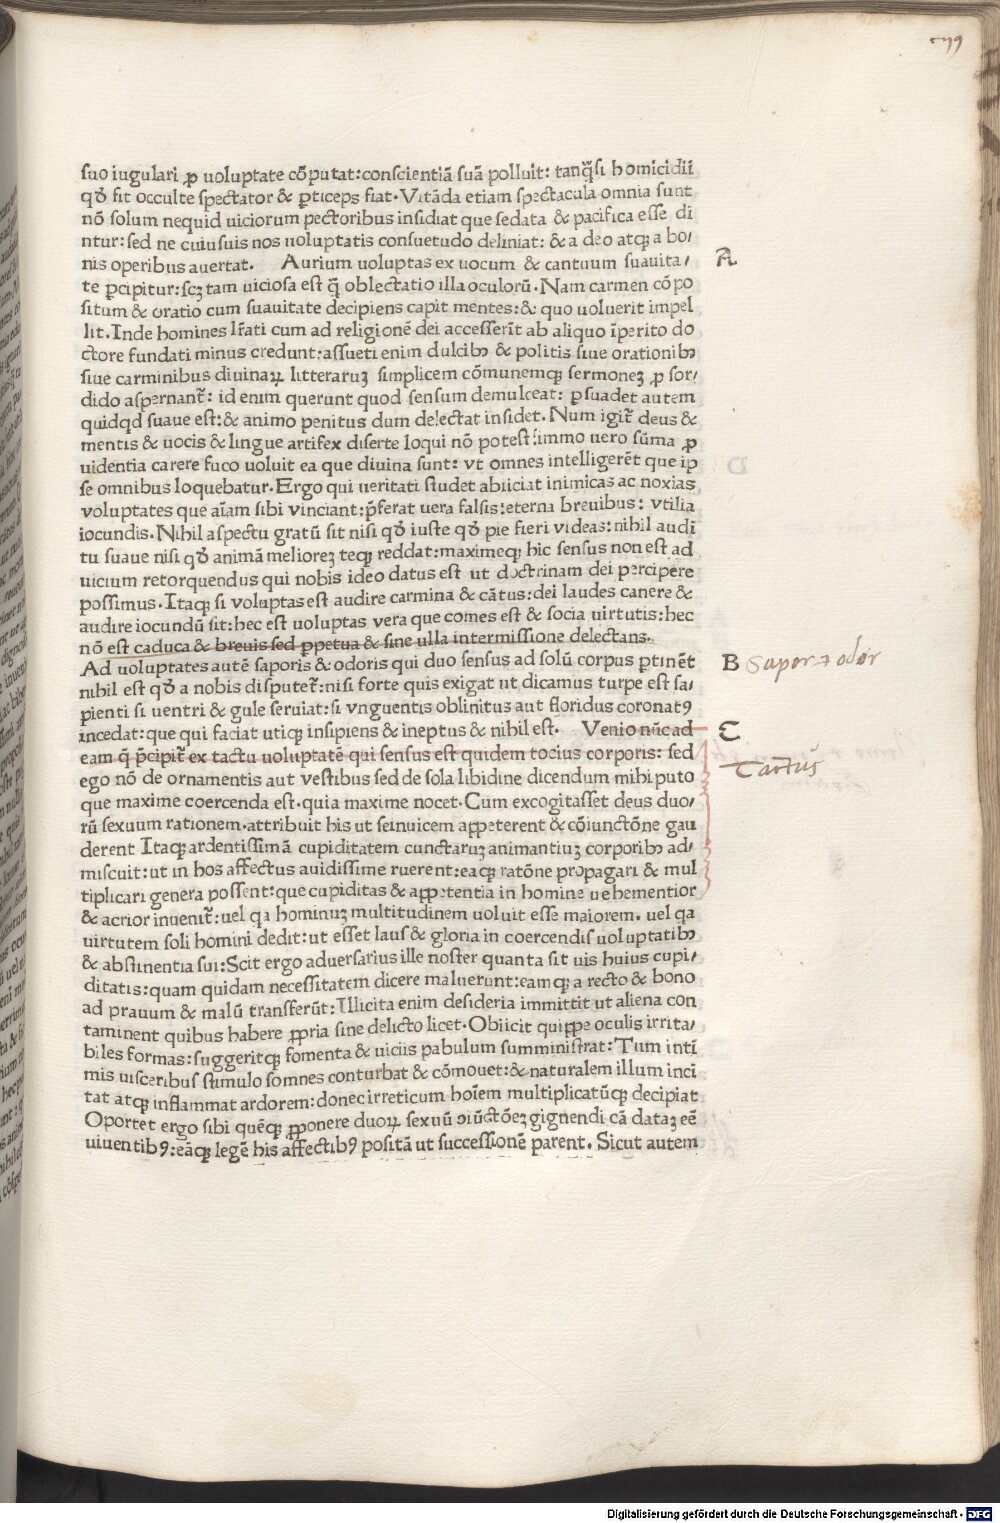 suo iugulari ꝓ uoluptate cōputat: conscientiā suā polluit: tanq̄si homicidii
qđ fit occulte spectator & ꝑticeps fiat. Vitāda etiam spectacula omnia sunt
nō solum nequid uiciorum pectoribus insidiat que sedata & pacifica esse di
ntur: sed ne cuiusuis nos uoluptatis consuetudo deliniat: & a deo atqꝫ a bo/
nis operibus auertat. Aurium uoluptas ex uocum & cantuum suauita/
te ꝑcipitur: scꝫ tam uiciosa est q̄ oblectatio illa oculorū. Nam carmen cōpo
situm & oratio cum suauitate decipiens capit mentes: & quo uoluerit impel
lit. Inde homines lr̄ati cum ad religionē dei accesserīt ab aliquo īperito do
ctore fundati minus credunt: assueti enim dulcibꝫ & politis siue orationibꝫ
siue carminibus diuinaꝝ litteraruꝫ simplicem cōmunemqꝫ sermoneꝫ ꝓ sor/
dido aspernant᷑: id enim querunt quod sensum demulceat: ꝑsuadet autem
quidqd suaue est: & animo penitus dum delectat insidet. Num igit᷑ deus &
mentis & uocis & lingue artifex diserte loqui nō potest: immo uero sūma ꝓ
uidentia carere fuco uoluit ea que diuina sunt: vt omnes intelligerēt que ip
se omnibus loquebatur. Ergo qui ueritati studet abiiciat inimicas ac noxias
voluptates que aīam sibi vinciant: p̄ferat uera falsis: eterna breuibus: vtilia
iocundis. Nihil aspectu gratū sit nisi qđ iuste qđ pie fieri videas: nihil audi
tu suaue nisi qđ animā melioreꝫ teqꝫ reddat: maximeqꝫ hic sensus non est ad
uicium retorquendus qui nobis ideo datus est ut doctrinam dei percipere
possimus. Itaqꝫ si voluptas est audire carmina & cātus: dei laudes canere &
audire iocundū sit: hec est uoluptas vera que comes est & socia uirtutis: hec
nō est caduca & breuis sed ꝑpetua & sine ulla intermissione delectans.
Ad uoluptates autē saporis & odoris qui duo sensus ad solū corpus ꝑtinēt
nihil est qđ a nobis disputet᷑: nisi forte quis exigat ut dicamus turpe est sa/
pienti si uentri & gule seruiat: si vnguentis oblinitus aut floridus coronatꝰ
incedat: que qui faciat utiqꝫ insipiens & ineptus & nihil est. Venio nūc ad
eam q̄ p̄cipit᷑ ex tactu uoluptatē qui sensus est quidem tocius corporis: sed
ego nō de ornamentis aut vestibus sed de sola libidine dicendum mihi puto
que maxime coercenda est. quia maxime nocet. Cum excogitasset deus duo/
rū sexuum rationem. attribuit his ut seinuicem appeterent & cōiunctōne gau
derent Itaqꝫ ardentissimā cupiditatem cunctaruꝫ animantiuꝫ corporibꝫ ad/
miscuit: ut in hos affectus auidissime ruerent: eaqꝫ ratōne propagari & mul
tiplicari genera possent: que cupiditas & appetentia in homine uehementior
& acrior inuenit᷑: uel qa hominuꝫ multitudinem uoluit esse maiorem. uel qa
uirtutem soli homini dedit: ut esset laus & gloria in coercendis uoluptatibꝫ
& abstinentia sui: Scit ergo aduersarius ille noster quanta sit uis huius cupi/
ditatis: quam quidam necessitatem dicere maluerunt: eamqꝫ a recto & bono
ad prauum & malū transferūt: Illicita enim desideria immittit ut aliena con
taminent quibus habere ꝓpria sine delicto licet. Obiicit quippe oculis irrita/
biles formas: suggeritqꝫ fomenta & uiciis pabulum sumministrat: Tum inti
mis uisceribus stimulos omnes conturbat & cōmouet: & naturalem illum inci
tat atqꝫ inflammat ardorem: donec irreticum hoīem multiplicatūqꝫ decipiat
Oportet ergo sibi quēqꝫ ꝓponere duoꝝ sexuū ↄiūctōeꝫ gignendi cā dataꝫ eē
uiuentibꝰ: eāqꝫ legē his affectibꝰ positā ut successionē parent. Sicut autem
A
B Sapor & odor
C
Tactus
Digitalisierung gefördert durch die Deutsche Forschungsgemeinschaft - DFG